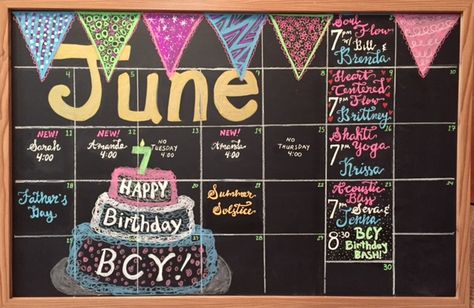 June
Soul
Flow
7 PM w/ Bill
& Brenda
4
5
7
8
9
Heart
Centered
7 PM Flow
Brittney
11
12
13
14
15
16
NEW!
Sarah
4:00
NEW!
Amanda
4:00
NO
TUESDAY
4:00
NEW!
Amanda
4:00
NO
THURSDAY
4:00
Shakti
7 PM Yoga
Krissa
18
21
22
23
Father's
Day
7
HAPPY
Birthday
BCY!
Summer
Solstice
Acoustic
Bliss
7 PM Seva &
Jenna
8:30 BCY
Birthday
BASH!
25
28
29
30